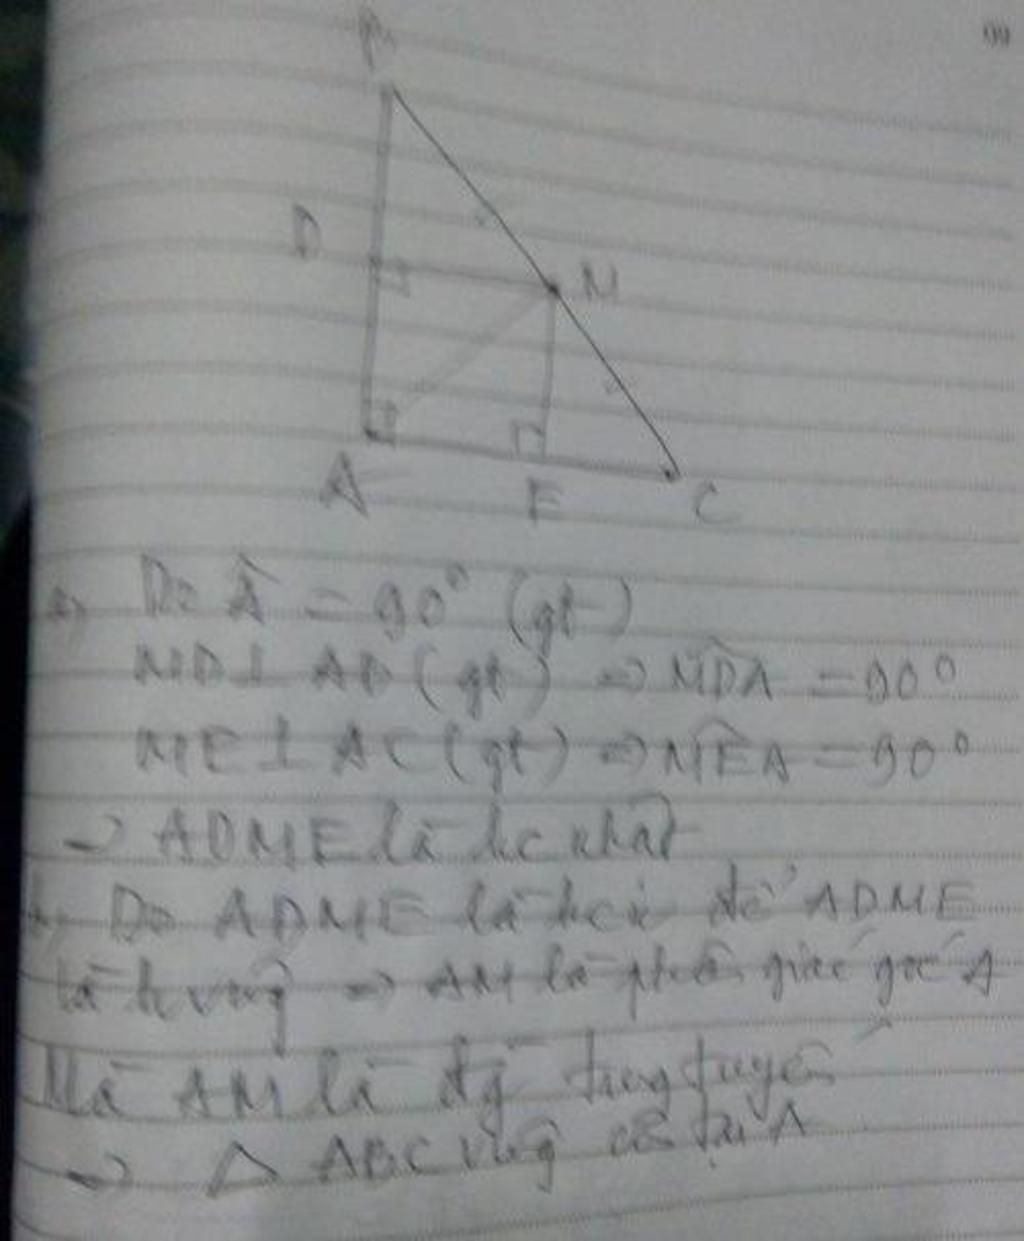 D
M
A
E
C
a, Do Â = 90° (gt)
MD⊥ AB (gt) => MDA = 90°
ME⊥ AC (gt) => MEA = 90°
-> ADME là hc nhật
Do ADME là hcn để ADME
là h vuông => AM là phân giác góc A
Mà AM là đg trung tuyến
-> Δ ABC vuông cân tại A